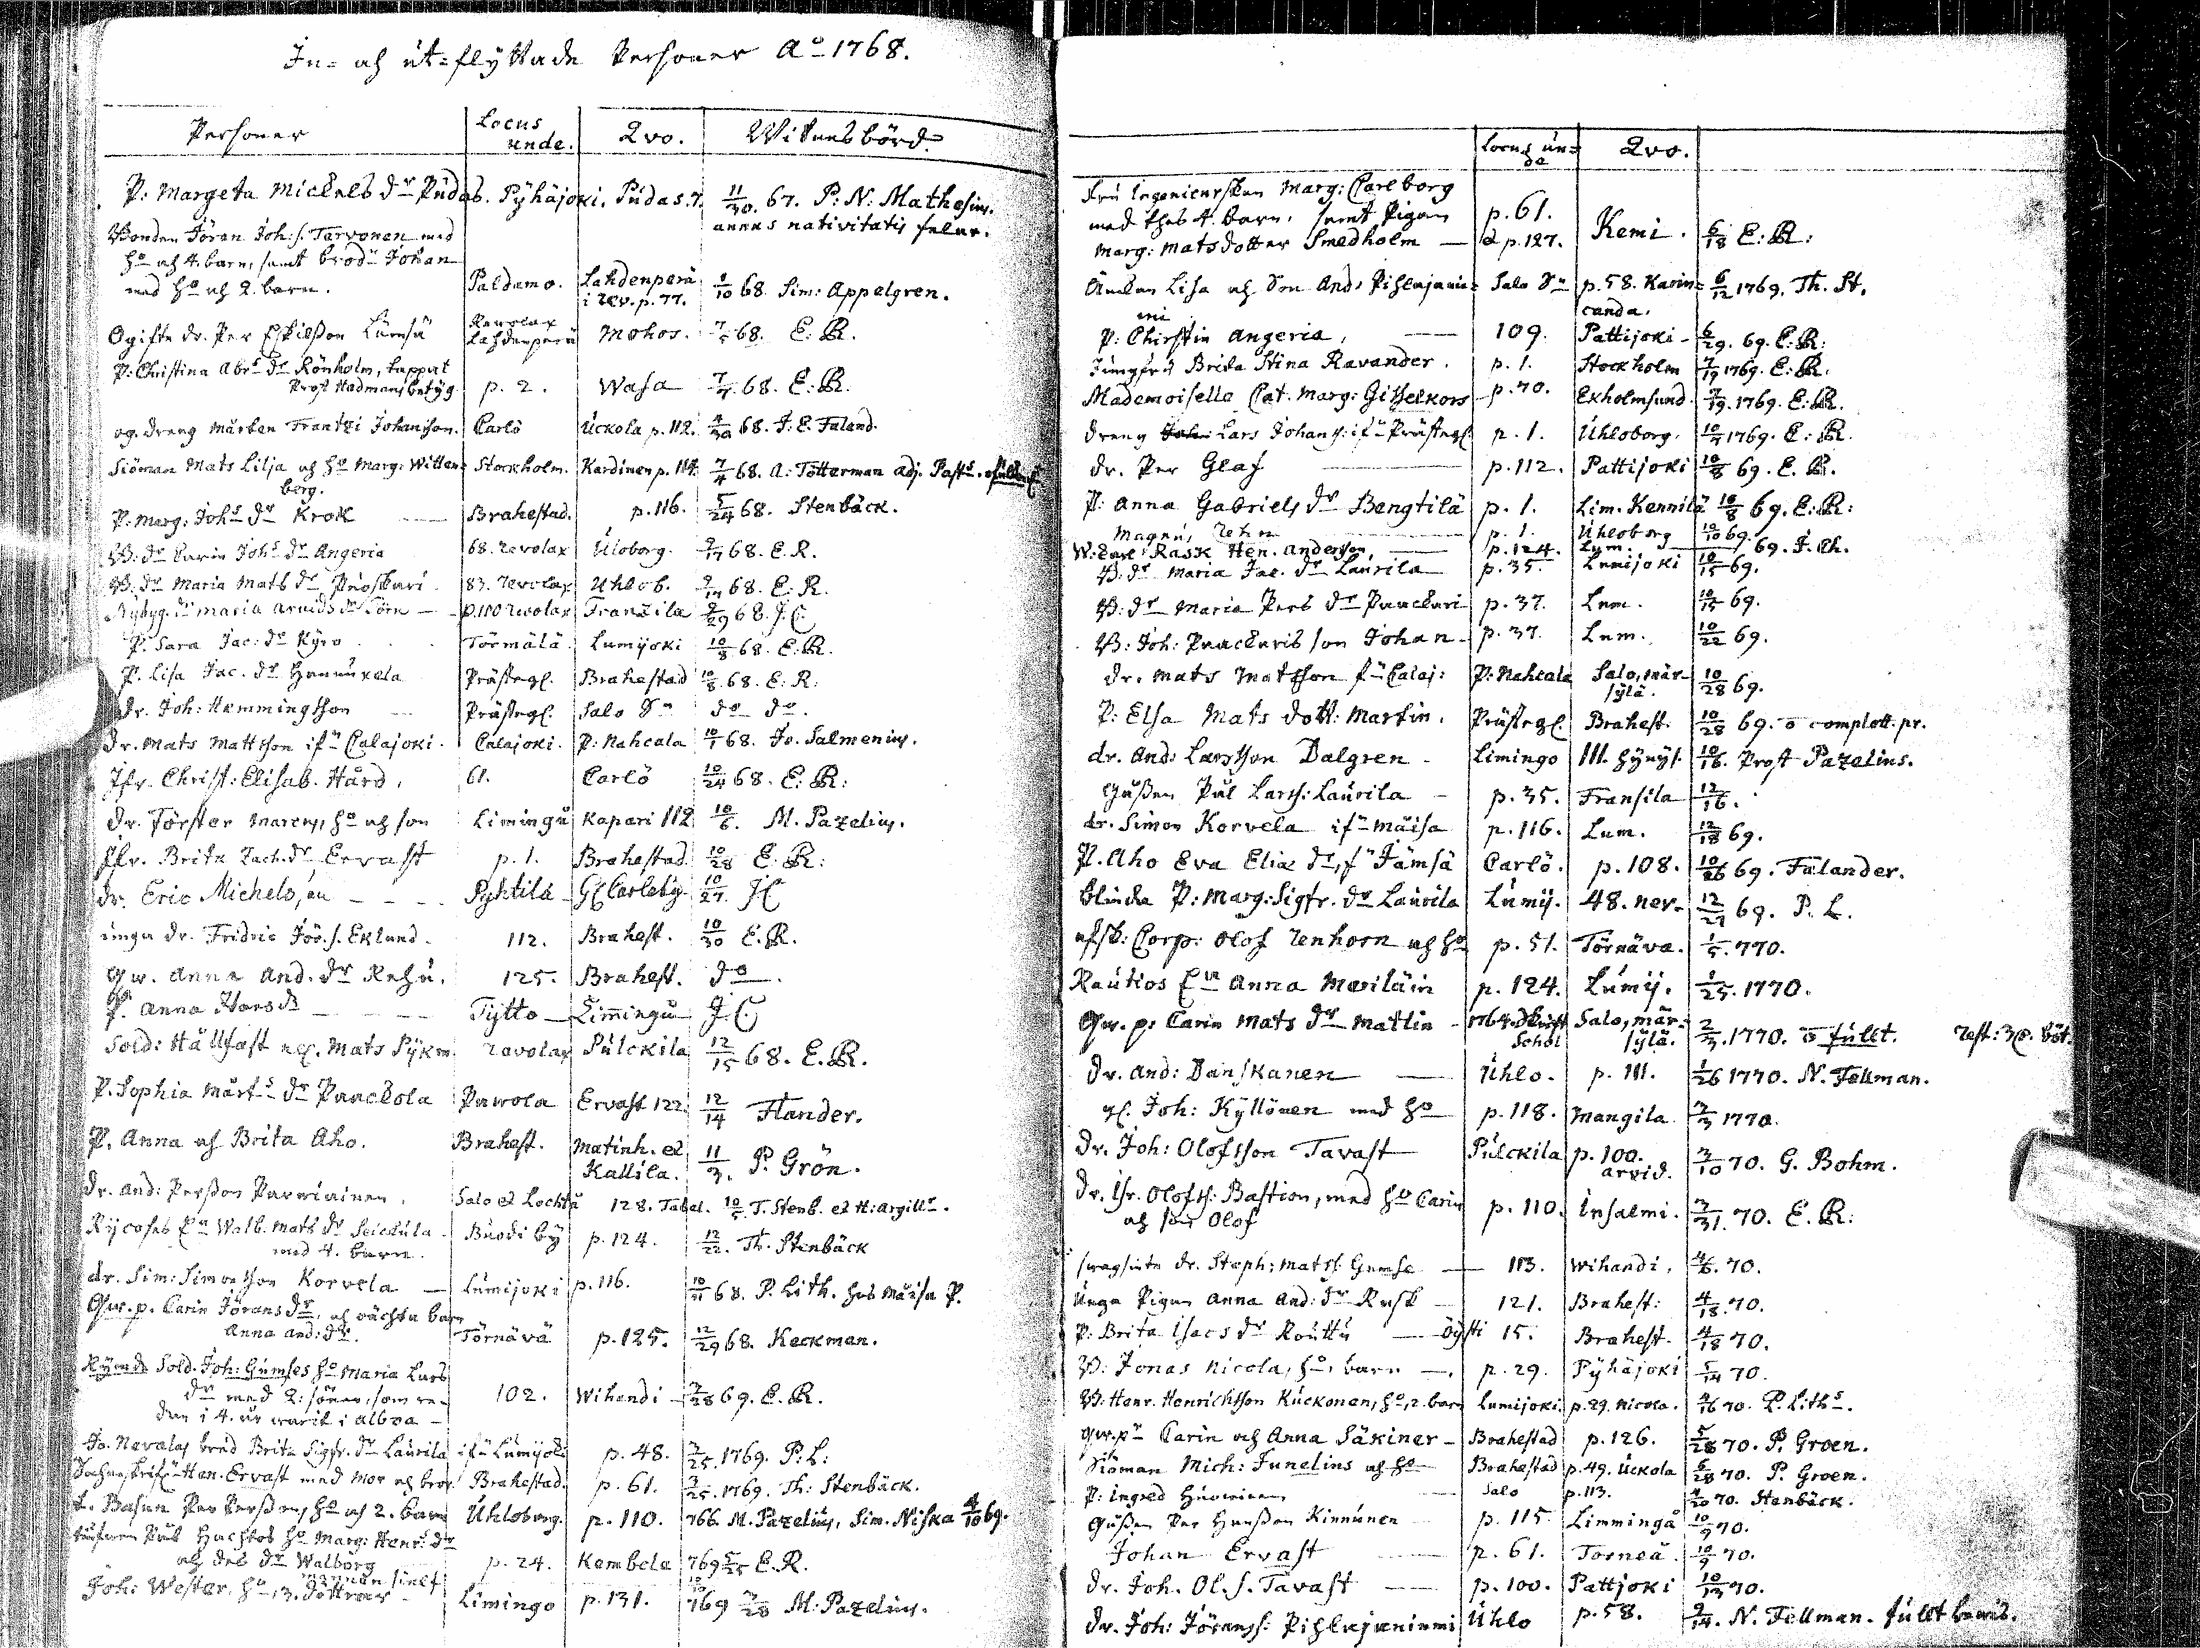 In- och út-flyttade Personer Ao 1768.
Personer Locus unde. Qvo. Witnesbörd
P: Margeta Mickels dr Pudas. Pÿhäjoki. Púdas. 7. 11/30. 67. P: N: Mathesius.
annus nativitatis felar.
Bonden Jöran Joh: s. Tarvonen med
ho och 4. barn, samt brodn Johan
med ho och 2. barn. Paldamo. Lahdenperä i rev. p. 77. 1/10 68. Sim: Appelgren.
Ogifte dr. Per Eskilsson Lämsä Revolax Lahdenperä Mohos. 7/5 68. E: R.
P: Christina Abrs dr Rönholm, tappat
Prost Hedmans betyg. p. 2. Wasa 7/4. 68. E: R.
og. dreng mästen Frantzi Johansson. Carlö Úckola p. 112. 4/30 68. J. E. Faland.
Siöman Mats Lilja och ho Marg: Witten-
berg. Stockholm. Kardinen p. 114. 7/4 68. A: Tötterman adj. Past:
P. Marg: Johs dr Krok Brahestad. p. 116. 5/24 68. Stenbäck.
B: dr Carin Johs dr Angeria 68. revolax Úloborg. 9/17 68. E. R.
B. dr Maria Mats dr Pioskari 83. revolax Uhlob. 9/18 68. E. R.
Nybyg. dr Maria Arvids dr Törn p. 110 revolax Franzila 9/29 68. J. C.
P. Sara Jac: dr Kÿrö Törmälä. Lumijoki 10/8 68. E: R.
P. Lisa Jac. dr Hannuxela Prästeg. Brahestad 10/8. 68. E: R:
dr. Joh: Hemmingsson Prästeg. Salo Sn do do.
dr. Mats Mattsson ifrn Calajoki. Calajoki. P: Nahcala 10/1 68. Jo. Salmenius.
Jfr. Christ: Elisab. Hård. 61. Carlö 10/24 68. E: R:
dr. Förster Marcus, ho och son Limingú Kapari 112 10/6. M. Pazelius.
Jfr. Brita Zach. dr Ervast p. 1. Brahestad. 10/28 E: R:
dr. Eric Michels, en Pyhtilä G. Carleby 10/27. JC
unga dr. Fridric Jör. s. Eklund. 112. Brahest. 10/30 E. R.
Qw. Anna And. dr Rehu. 125. Brahest. do.
P. Anna Hans dr Tÿtto Limingu J. C.
Sold: Hällfast Mats Pÿkm. revolax Púlckila 12/15 68. E. R.
P. Sophia Mårts dr Paackola Pawola Ervast 122. 12/14 Flander.
P. Anna och Brita Aho. Brahest. Matinh. et Kallila. 11/3. P. Grön.
dr. And: Persson Parviainen. Salo et Lochtå 128. Tabel. 10/5. T. Stenb. et H: Argills.
Rÿcoses En Walb. Mats dr Seickula
med 4. barn. Buodi by p. 124. 12/22. Th. Stenbäck
dr. Sim: Simonsson Korvela Lumijoki p. 116. 10/11 68. P. Lith. hos Maisu P.
Qw. p. Carin Jörans dr, och oächta barn
Anna And: dr. Törnävä p. 125. 12/29 68. Keckman.
Rÿmde Sold. Joh: Gumses ho Maria Lars
dr med 2: söner, som re-
dan i 4. år warit i albra 102. Wihandi 2/28 69. E. R.
Jo. Nevalas brud Brita Sigfr. dr Laurila ifrn Lumijoki p. 48. 2/25. 1769. P: L:
Hen. Ervast med mor och bror Brahestad. p. 61. 2/25. 1769. Th: Stenbäck.
L. Basun Per Persson, ho och 2. barn Úhloborg. p. 110. 766. M. Pazelius, Sim. Niska 4/10 69.
Påls Huchtos ho Marg: Henrs dr
och des dr Walborg p. 24. Kembele 769 5/25 E. R.
Joh: Wester, ho, 3. döttrar Limingo p. 131. 769 2/28 M: Pazelius.
Locus unde Qvo.
Fru Ingenieurskan Marg: Carlborg
med thes 4. barn. samt Pigan
Marg: Matsdotter Smedholm p. 61. & p. 127. Kemi. 6/18 E: R:
Änkan Lisa och Son And: Pihlajanie-
mi Salo Sn p. 58. Karin- canda. 6/12 1769. Th. St.
P: Chirstin Angeria, 109. Pattijoki 6/29. 69. E: R:
Jungfru Brita Stina Ravander. p. 1. Stockholm 7/19 1769. E: R.
Mademoiselle Cat. Marg: Githelkors p. 70. Exholmsund. 7/19. 1769. E: R.
dreng Lars Johans: ifrn Prästeg. p. 1. Úhloborg. 10/7 1769. E: R.
dr. Per Glas p. 112. Pattijoki 10/8 69. E. R.
P: Anna Gabriels dr Bengtilä p. 1. Lim. Kennilä 10/8 69. E: R:
Magnus Rehn p. 1. Úhloborg 10/10 69.
W. Carl: Rask Hen. Andersson, p. 124. Lum. 69. J. Ch.
B: dr Maria Jac. dr Laurila p. 35. Lumijoki 10/15 69.
B: dr Maria Pers dr Paackari p. 37. Lum. 10/15 69.
B: Joh: Paackaris son Johan p. 37. Lum. 10/22 69.
dr. Mats Matsson fn Calaj: P: Nahcala Salo, mär-sylä. 10/28 69.
P: Elsa Mats dott: Martin. Prästeg. Brahest. 10/28 69. complott. pr.
dr. And: Larsson Dalgren Limingo 111. Hÿnys. 10/16. Prost Pazelius.
Gussen Pål Larss: Laurila p. 35. Fransila 12/16.
dr. Simon Korvela ifrn Maisa p. 116. Lum. 12/18 69.
P. Aho Eva Eliæ dr, fn Jämsä Carlö. p. 108. 10/26 69. Falander.
blinda P: Marg: Sigfr. dr Laurila Lúmij. 48. ner- 12/27 69. P. L.
afsk: Corp: Olof Renhorn och ho p. 51. Törnäva. 1/5. 770.
Rautios En Anna Meriläin p. 124. Lúmij. 1/25. 1770.
Qw. p: Carin Mats dr Matlin 1764. Salo, mär-sylä. 2/3. 1770. fullt. rest:
dr. And: Danskanen Úhlo. p. 111. 1/26 1770. N. Fellman.
g. Joh: Kÿllönen med ho p. 118. Mangila 3/3 1770.
dr. Joh: Olofsson Tavast Púlckila p. 100. arvid. 3/10 70. G. Bohm.
dr. Isr. Olofs: Bastion, med ho Carin
och son Olof p. 110. Insalmi. 3/31. 70. E. R:
dr. Steph: Mats: Gumse 113. Wihandi. 4/6. 70.
Unga Pigan Anna And: dr Rusk 121. Brahest: 4/18. 70.
P: Brita Isacs dr Routtu Öÿsti 15. Brahest. 4/18 70.
B: Jonas Nicola, ho, barn p. 29. Pÿhäjoki 5/14 70.
B: Henr. Henrichsson Kúckonen, ho, 2. barn Lumijoki. p. 29. Nicola. 4/16 70. P. Liths.
Qw. pn Carin och Anna Säkiner Brahestad p. 126. 5/28 70. P. Groen.
Siöman Mich: Junelius och ho Brahestad p. 49. Úckola 6/28 70. P. Groen.
P: Ingred Huovinen Salo p. 113. 4/20 70. Stenbäck.
Gussen Per Hansson Kinnúnen p. 115. Limmingå 10/9 70.
Johan Ervast p. 61. Torneå. 10/9 70.
dr. Joh. Ol. s. Tavast p. 100. Pattjoki 10/13 70.
dr. Joh: Jöranss: Pihlajaniemi Úhlo p. 58. 9/14. N. Fellman. fullt bewis.